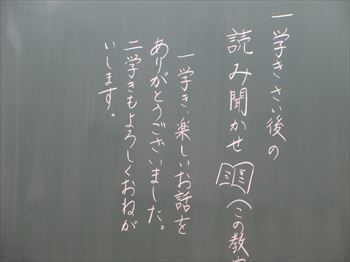 一学きさい後の
読み聞かせ(この教
一学き、楽しいお話を
ありがとうございました。
二学きもよろしくおねが
いします。